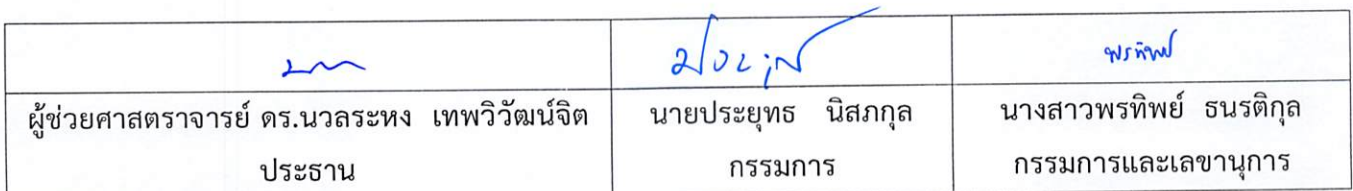 พรทิพย์
ผู้ช่วยศาสตราจารย์ ดร.นวลระหง  เทพวิวัฒน์จิต
ประธาน
นายประยุทธ  นิสภกุล
กรรมการ
นางสาวพรทิพย์  ธนรติกุล
กรรมการและเลขานุการ